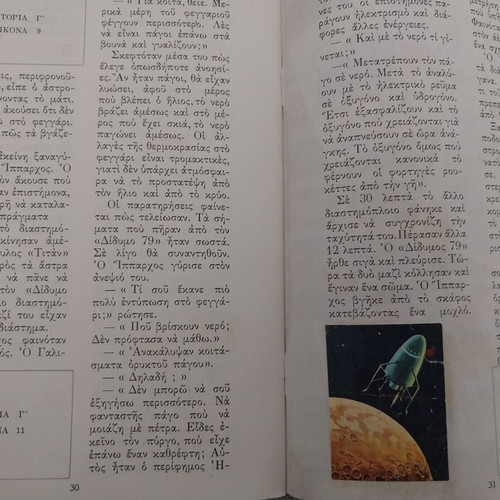 ΤΟΡΙΑ Γ'
ΙΚΟΝΑ 9
ις, περιφρονοῦ-
ει, εἶπε ὁ ἀστρο-
νοντας τὸ μάτι.
ἀκούσει ὅτι δὲν
στὸ φεγγάρι.
πῶς τὰ βγάζε-
εκείνη ξαναγύ-
Ἵππαρχος. Ὁ
ἄκουσε ποὺ
ἐπιστήμονα,
νὰ καταλα-
πράγματα
διαστημό-
κίνησαν ἀμέ-
«Τιτὰν»
τὰ ἄστρα
νὰ πάνε νὰ
τὸν «Δίδυμο
διαστημό-
τοῦ εἶχαν
διάστημα.
φαινόταν
Ὁ Γαλι-
ΙΑ Γ'
ΝΑ 11
— « Γιὰ κοίτα, θεῖε. Με-
ρικὰ μέρη τοῦ φεγγαριοῦ
φέγγουν περισσότερο. Λὲς
νὰ εἶναι πάγοι ἐπάνω στὰ
βουνὰ καὶ γυαλίζουν;»
Σκεφτόταν μέσα του πὼς
ἔλεγε ὁπωσδήποτε ἀνοησί-
ες. Ἂν ἦταν πάγοι, θὰ εἶχαν
λυώσει, ἀφοῦ στὸ μέρος
ποὺ βλέπει ὁ ἥλιος, τὸ νερὸ
βράζει ἀμέσως καὶ στὸ μέ-
ρος ποὺ ἔχει σκιά, τὸ νερὸ
παγώνει ἀμέσως. Οἱ ἀλ-
λαγὲς τῆς θερμοκρασίας στὸ
φεγγάρι εἶναι τρομακτικές,
γιατὶ δὲν ὑπάρχει ἀτμόσφαι-
ρα νὰ τὸ προστατέψη ἀπὸ
τὸν ἥλιο καὶ ἀπὸ τὸ κρύο.
Οἱ παρατηρήσεις φαίνε-
ται πὼς τελείωσαν. Τὰ σή-
ματα ποὺ πῆραν ἀπὸ τὸν
«Δίδυμο 79» ἦταν σωστά.
Σὲ λίγο θὰ συναντηθοῦν.
Ὁ Ἵππαρχος γύρισε στὸν
ἀνεψιό του.
— «Τί σοῦ ἔκανε πιὸ
πολὺ ἐντύπωση στὸ φεγγά-
ρι;» ρώτησε.
— «Ποῦ βρίσκουν νερό;
Δὲν πρόφτασα νὰ μάθω.»
— « Ἀνακάλυψαν κοιτά-
σματα ὀρυκτοῦ πάγου».
— « Δηλαδή ; »
— «Δὲν μπορῶ νὰ σοῦ
ἐξηγήσω περισσότερο. Νὰ
φανταστῆς πάγο ποὺ νὰ
μοιάζη μὲ πέτρα. Εἶδες ἐ-
κεῖνο τὸν πύργο, ποὺ εἶχε
ἐπάνω ἕναν καθρέφτη; Αὐ-
τὸς ἦταν ὁ περίφημος Ἡ-
30
νες του οἱ ἐπιστήμονες πα-
ράγουν ἠλεκτρισμὸ καὶ διά-
φορες ἄλλες ἐνέργειες.
— « Καὶ μὲ τὸ νερὸ τί γί-
νεται;»
— «Μετατρέπουν τὸν πά-
γο σὲ νερό. Μετὰ τὸ ἀναλύ-
ουν μὲ τὸ ἠλεκτρικὸ ρεῦμα
σὲ ὀξυγόνο καὶ ὑδρογόνο.
Ἔτσι ἐξασφαλίζουν καὶ τὸ
ὀξυγόνο ποὺ χρειάζονται γιὰ
νὰ ἀναπνεύσουν σὲ ὥρα ἀνά-
γκης. Τὸ ὀξυγόνο ὅμως ποὺ
χρειάζονται κανονικὰ τὸ
φέρνουν οἱ φορτηγὲς ρου-
κέττες ἀπὸ τὴν γῆ».
Σὲ 30 λεπτὰ τὸ ἄλλο
διαστημόπλοιο φάνηκε καὶ
ἄρχισε νὰ συγχρονίζη τὴν
ταχύτητά του. Πέρασαν ἄλλα
12 λεπτά. Ὁ «Δίδυμος 79»
ἦρθε σιγὰ καὶ πλεύρισε. Τώ-
ρα τὰ δυὸ μαζὶ κόλλησαν καὶ
ἔγιναν ἕνα σῶμα. Ὁ Ἵππαρ-
χος βγῆκε ἀπὸ τὸ σκάφος
κατεβάζοντας ἕνα μοχλό.
31